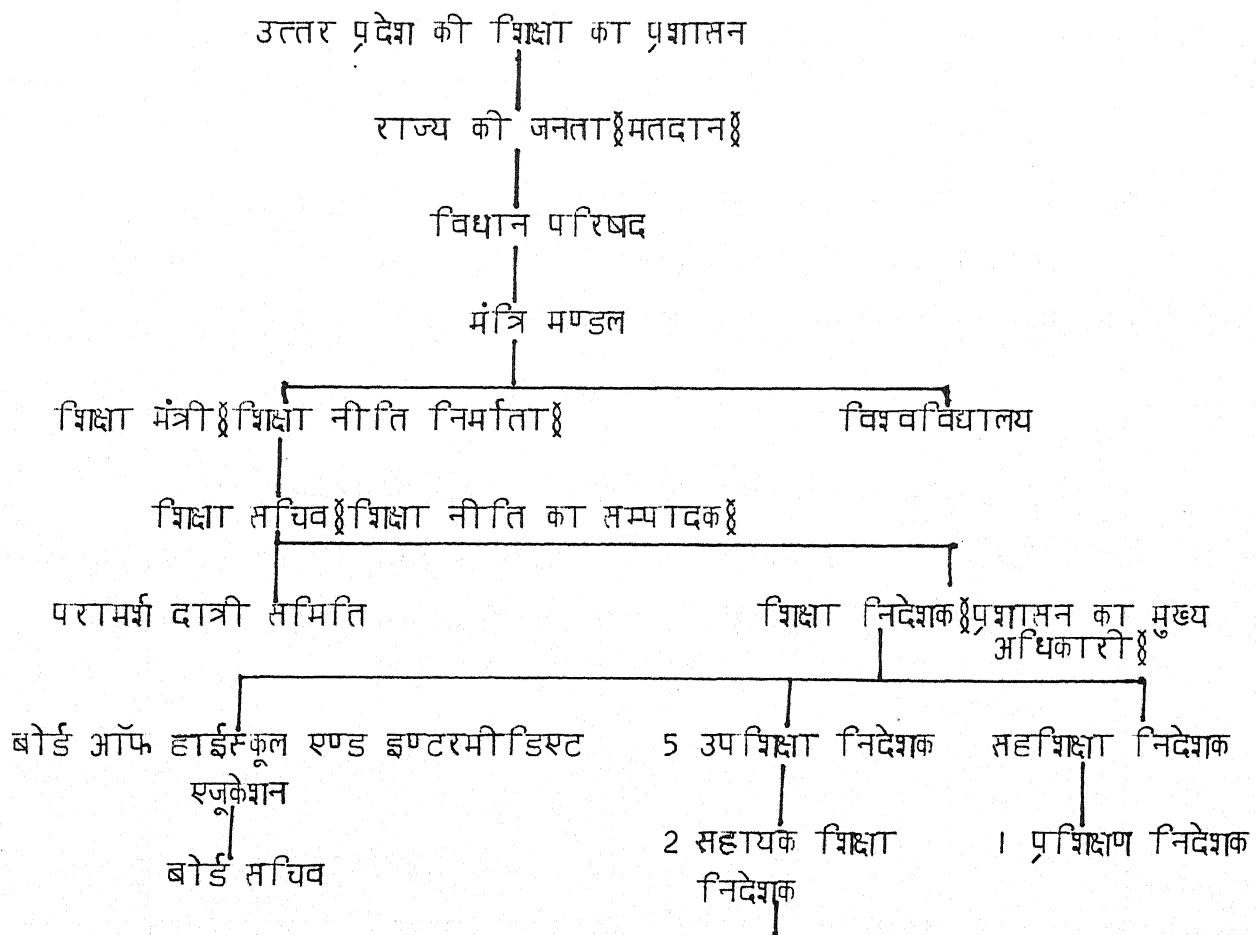 उत्तर प्रदेश की शिक्षा का प्रशासन
राज्य की जनता(मतदान)
विधान परिषद
मंत्रि मण्डल
शिक्षा मंत्री(शिक्षा नीति निर्माता)
विश्वविद्यालय
शिक्षा सचिव(शिक्षा नीति का सम्पादक)
परामर्श दात्री समिति
शिक्षा निदेशक(प्रशासन का मुख्य
अधिकारी)
बोर्ड ऑफ हाईस्कूल एण्ड इण्टरमीडिएट
एजूकेशन
5 उपशिक्षा निदेशक
सहशिक्षा निदेशक
बोर्ड सचिव
2 सहायक शिक्षा
निदेशक
1 प्रशिक्षण निदेशक